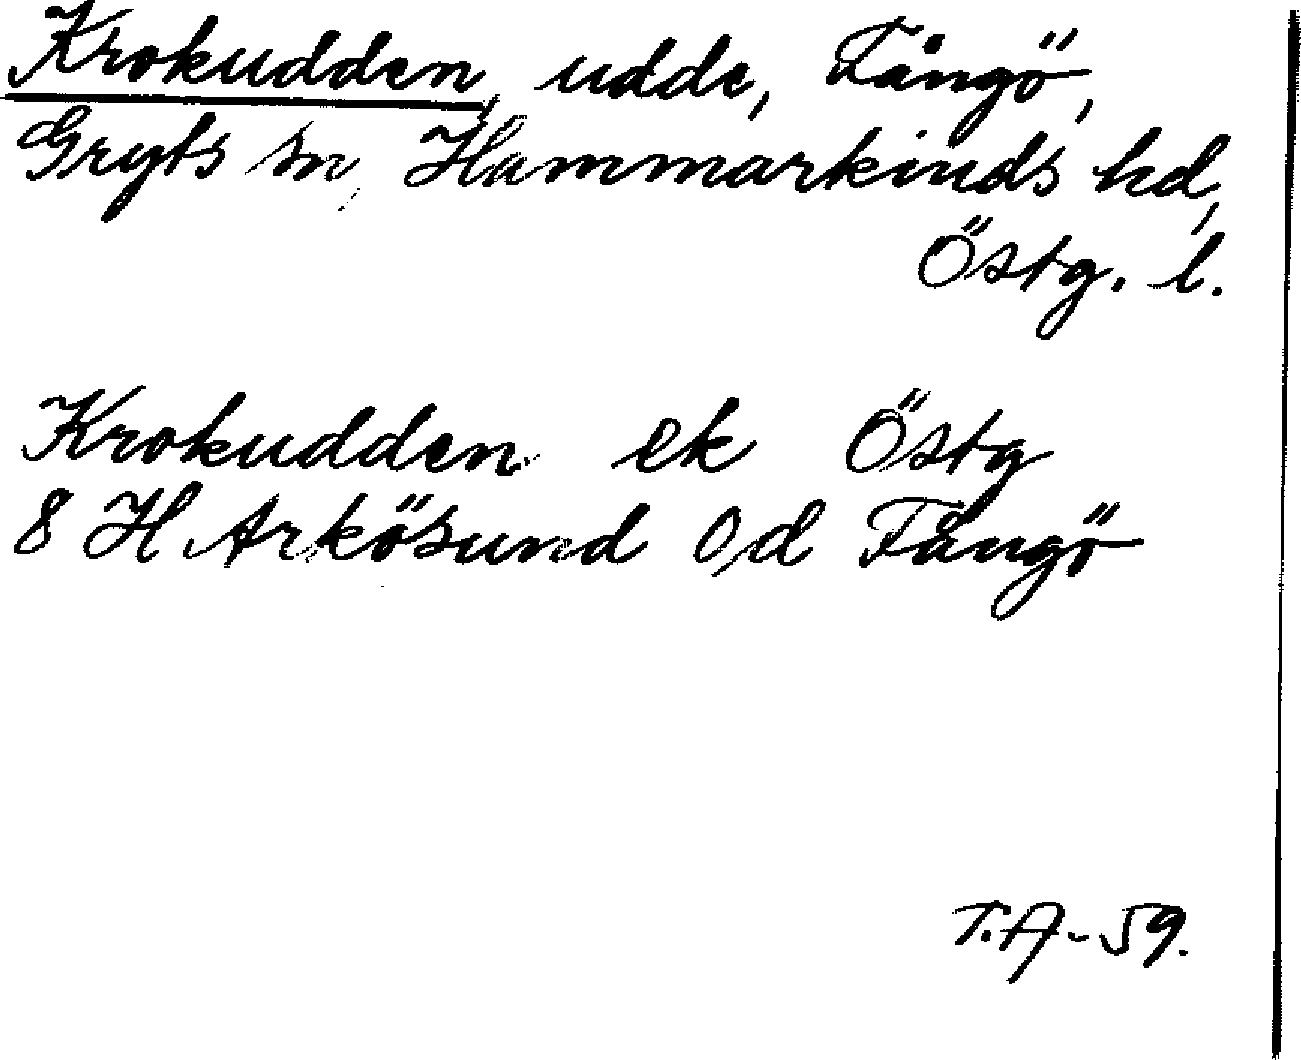 Krokudden, udde, Fångö,
Gryts sn, Hammarkinds hd,
Östg. l.
Krokudden ek Östg
8 H Arkösund O,d Fångö
T.A-59.